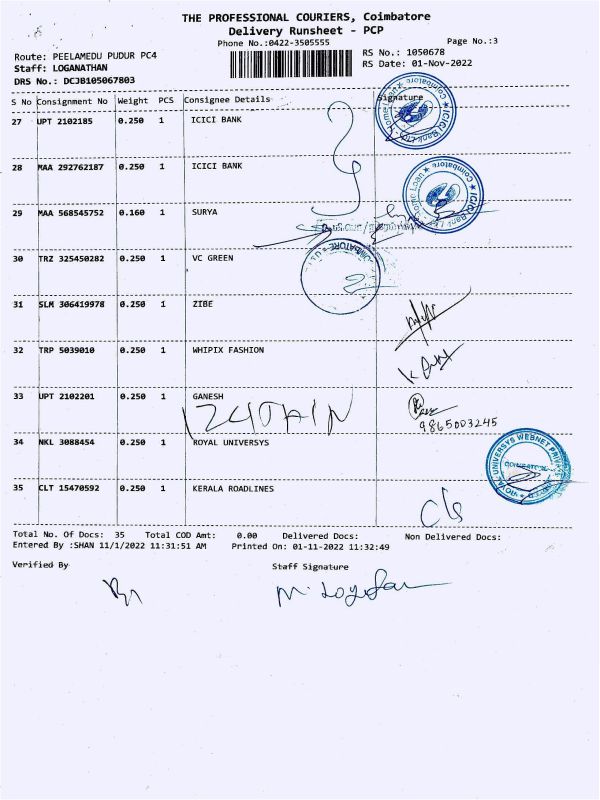 THE PROFESSIONAL COURIERS, Coimbatore
Delivery Runsheet - PCP
Phone No.:0422-3505555
Page No.:3
Route: PEELAMEDU PUDUR PC4
RS No.: 1050678
Staff: LOGANATHAN
RS Date: 01-Nov-2022
DRS No.: DCJB105067803
S No Consignment No Weight PCS Consignee Details Signature
27 UPT 2102185 0.250 1 ICICI BANK
28 MAA 292762187 0.250 1 ICICI BANK
29 MAA 568545752 0.160 1 SURYA
30 TRZ 325450282 0.250 1 VC GREEN
31 SLM 306419978 0.250 1 ZIBE
32 TRP 5039010 0.250 1 WHIPIX FASHION
33 UPT 2102201 0.250 1 GANESH
9865003245
34 NKL 3088454 0.250 1 ROYAL UNIVERSYS
35 CLT 15470592 0.250 1 KERALA ROADLINES
Total No. Of Docs: 35 Total COD Amt: 0.00 Delivered Docs: Non Delivered Docs:
Entered By :SHAN 11/1/2022 11:31:51 AM Printed On: 01-11-2022 11:32:49
Verified By Staff Signature